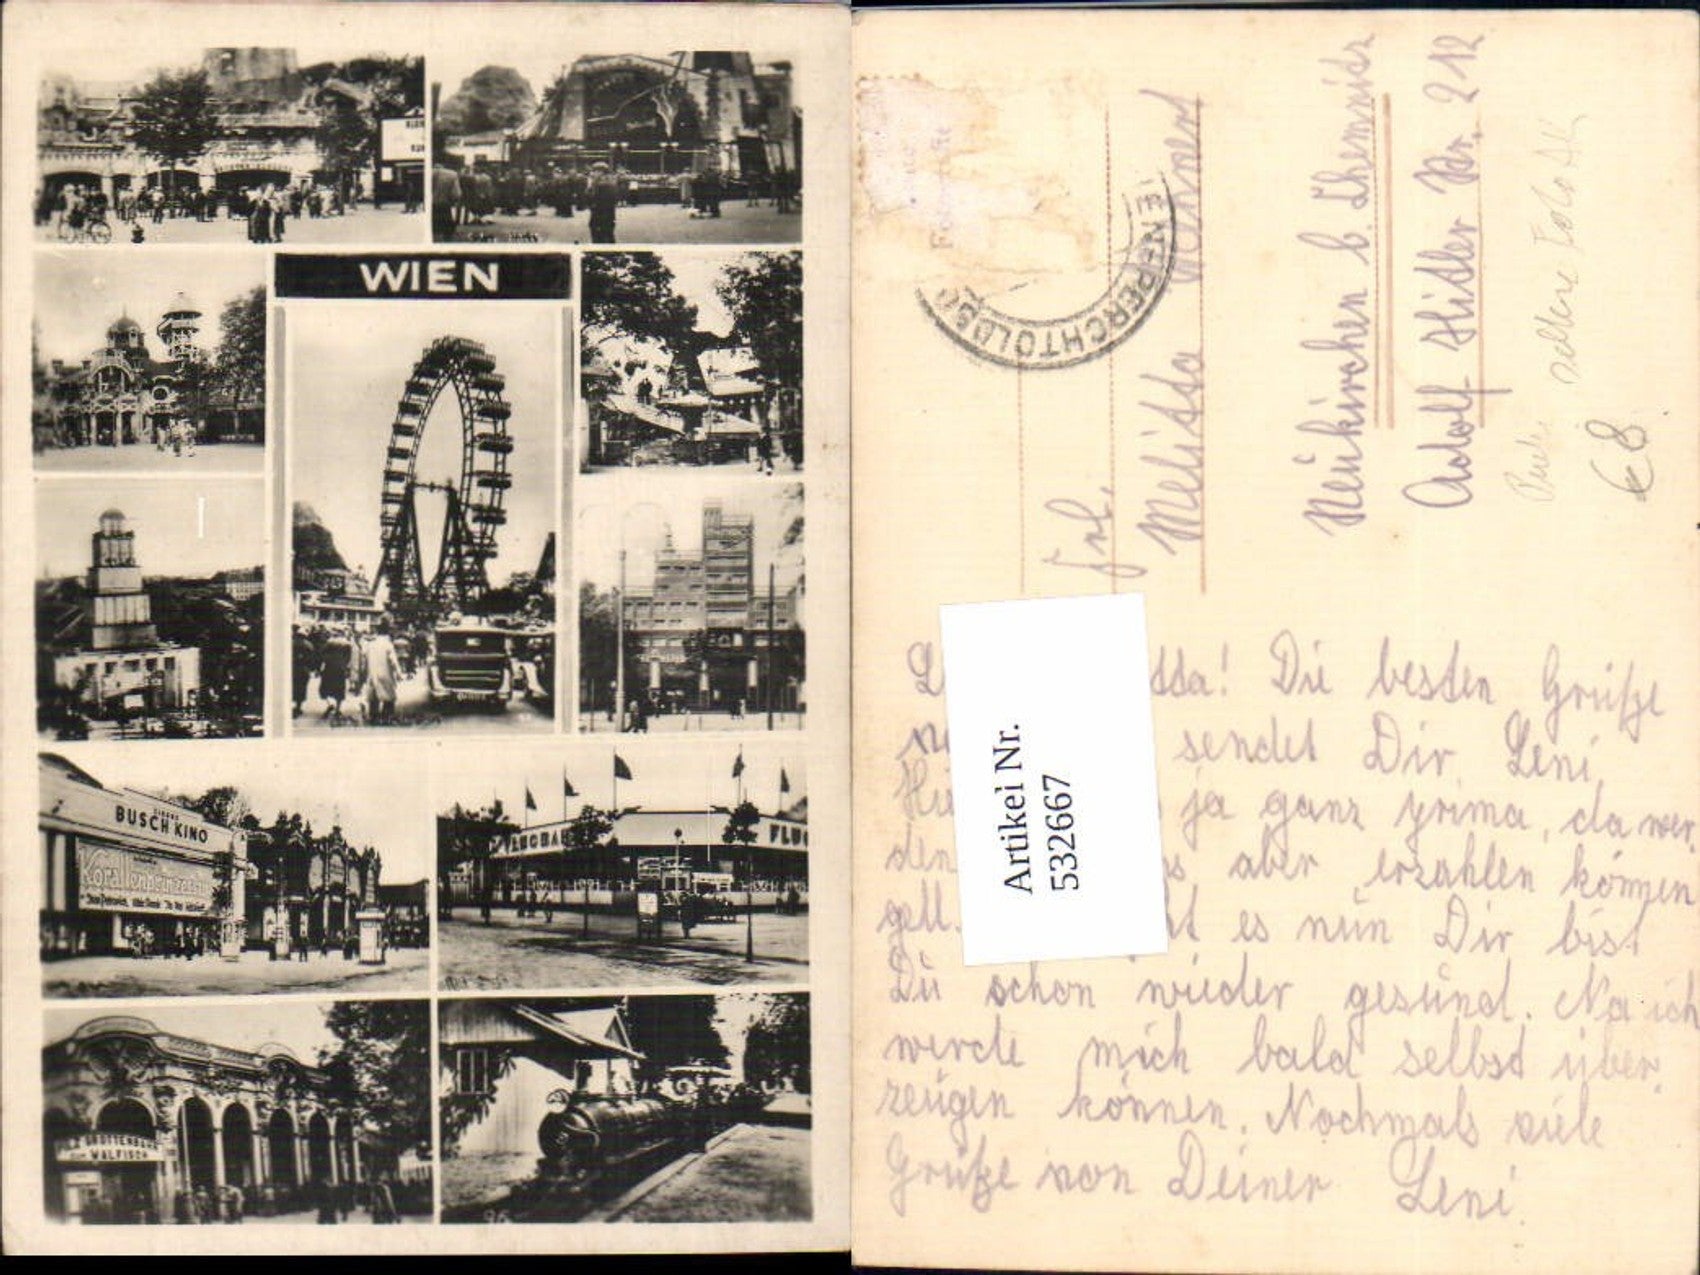 WIEN
BUSCH KINO
Korallenprinzessin
FLUGBAHN
FLUG
GROTTENBAHN
ZUM WALFISCH
96
Frl.
Melitta
Neukirchen b. Chemnitz
Adolf Hitler Str. 212
seltene Foto AK
€ 8
Artikel Nr.
532667
tta! Die besten Grüße
sendet Dir Leni.
ja ganz prima, da wer
den aber erzählen können
gell. es nun Dir bist
Du schon wieder gesund. Na ich
werde mich bald selbst über
zeugen können. Nochmals viele
Grüße von Deiner Leni.